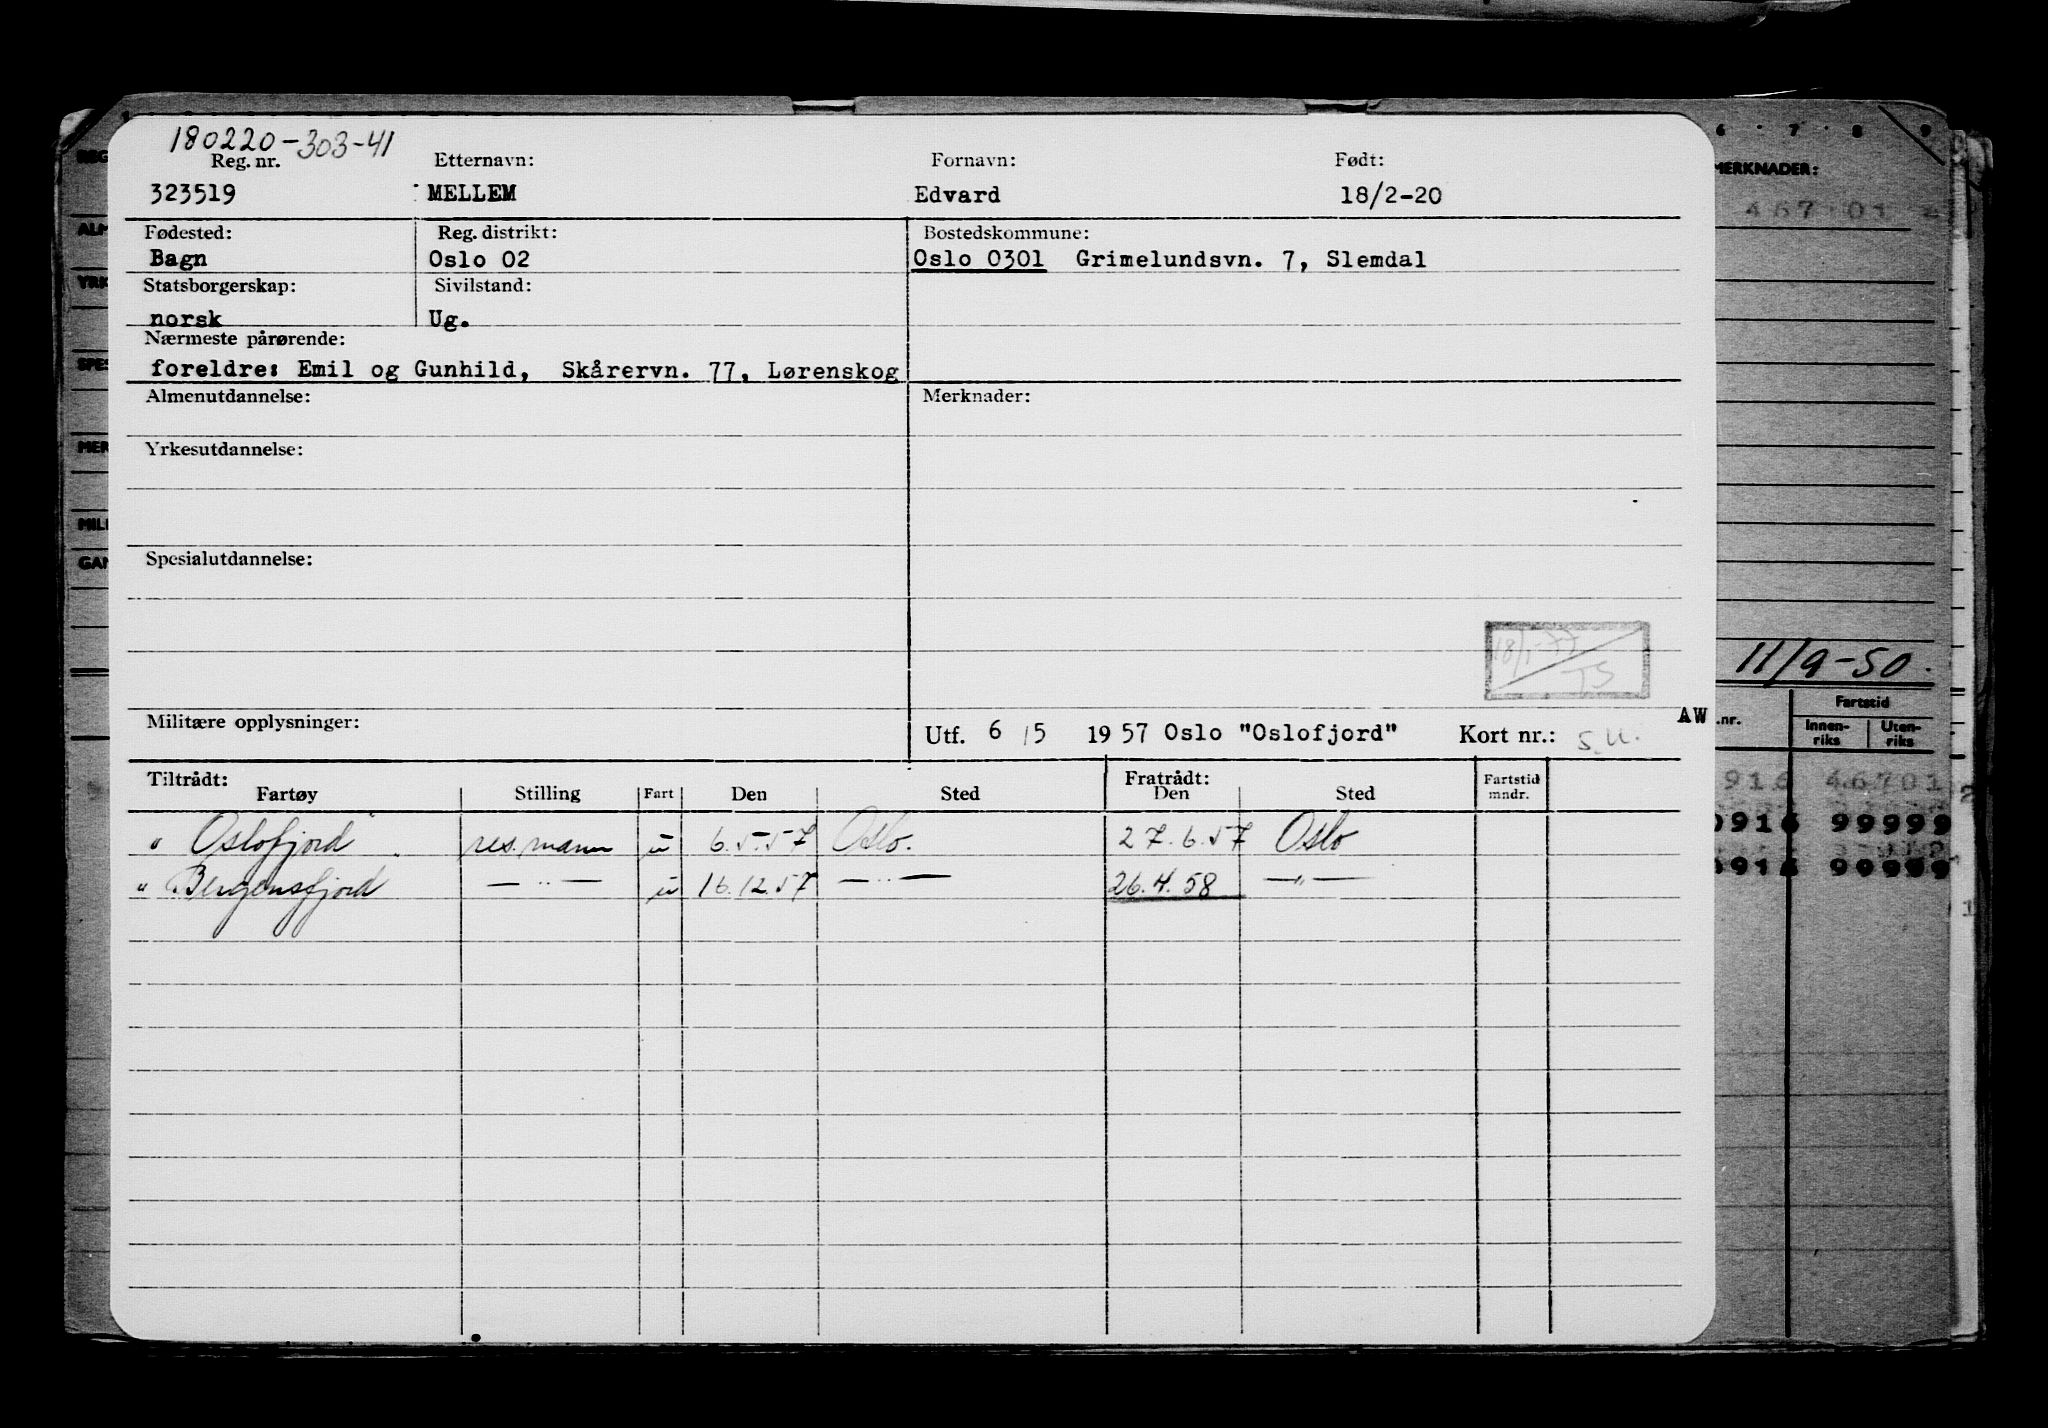 180220-303-41
Reg. nr. Etternavn: Fornavn: Født:
323519 MELLEM Edvard 18/2-20
Fødested: Reg. distrikt: Bostedskommune:
Bagn Oslo 02 Oslo 0301 Grimelundsvn. 7, Slemdal
Statsborgerskap: Sivilstand:
norsk Ug.
Nærmeste pårørende:
foreldre: Emil og Gunhild, Skårervn. 77, Lørenskog
Almenutdannelse: Merknader:
Yrkesutdannelse:
Spesialutdannelse:
18/1-77
TS
Militære opplysninger: Utf. 6/5 1957 Oslo "Oslofjord" Kort nr.: s.u. AW
Tiltrådt: Fratrådt: Fartstid
Fartøy Stilling Fart Den Sted Den Sted mndr.
" Oslofjord" res.mann u 6.5.57 Oslo. 27.6.57 Oslo
" Bergensfjord — " — u 16.12.57 — " — 26.4.58 — " —
6 7 8 9
MERKNADER:
467 01
11/9-50.
.nr. Fartstid
Innen-riks Uten-riks
916 46701
0916 99999
0916 99999
REG
ALM
YRK
SPES
MER
MILI
GAN